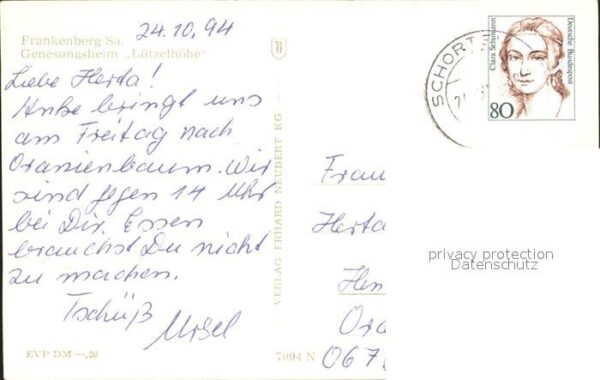 24.10.94
Frankenberg/Sa.
Genesungsheim „Lützelhöhe"
Liebe Herta!
Anke bringt uns
am Freitag nach
Oranienbaum. Wir
sind gegen 14 Uhr
bei Dir. Essen
brauchst Du nicht
zu machen.
Tschüß
Ursel
EVP DM —,20
7094 N
VERLAG ERHARD NEUBERT KG
SCHORT
Clara Schumann
Deutsche Bundespost
80
Frau
Herta
privacy protection
Datenschutz
Hen
Ora
067